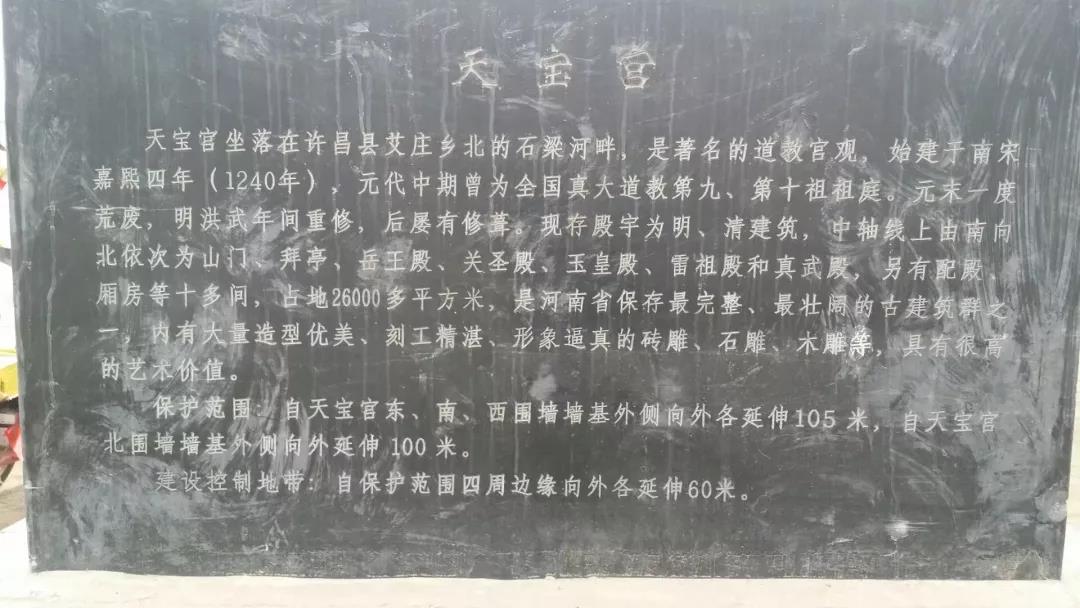 天宝宫
天宝宫坐落在许昌县艾庄乡北的石梁河畔，是著名的道教宫观，始建于南宋
嘉熙四年（1240年），元代中期曾为全国真大道教第九、第十祖祖庭。元末一度
荒废，明洪武年间重修，后屡有修葺。现存殿宇为明、清建筑，中轴线上由南向
北依次为山门、拜亭、岳王殿、关圣殿、玉皇殿、雷祖殿和真武殿，另有配殿、
厢房等十多间，占地26000多平方米，是河南省保存最完整、最壮阔的古建筑群之
一，内有大量造型优美、刻工精湛、形象逼真的砖雕、石雕、木雕等，具有很高
的艺术价值。
保护范围：自天宝宫东、南、西围墙墙基外侧向外各延伸105米，自天宝宫
北围墙墙基外侧向外延伸100米。
建设控制地带：自保护范围四周边缘向外各延伸60米。